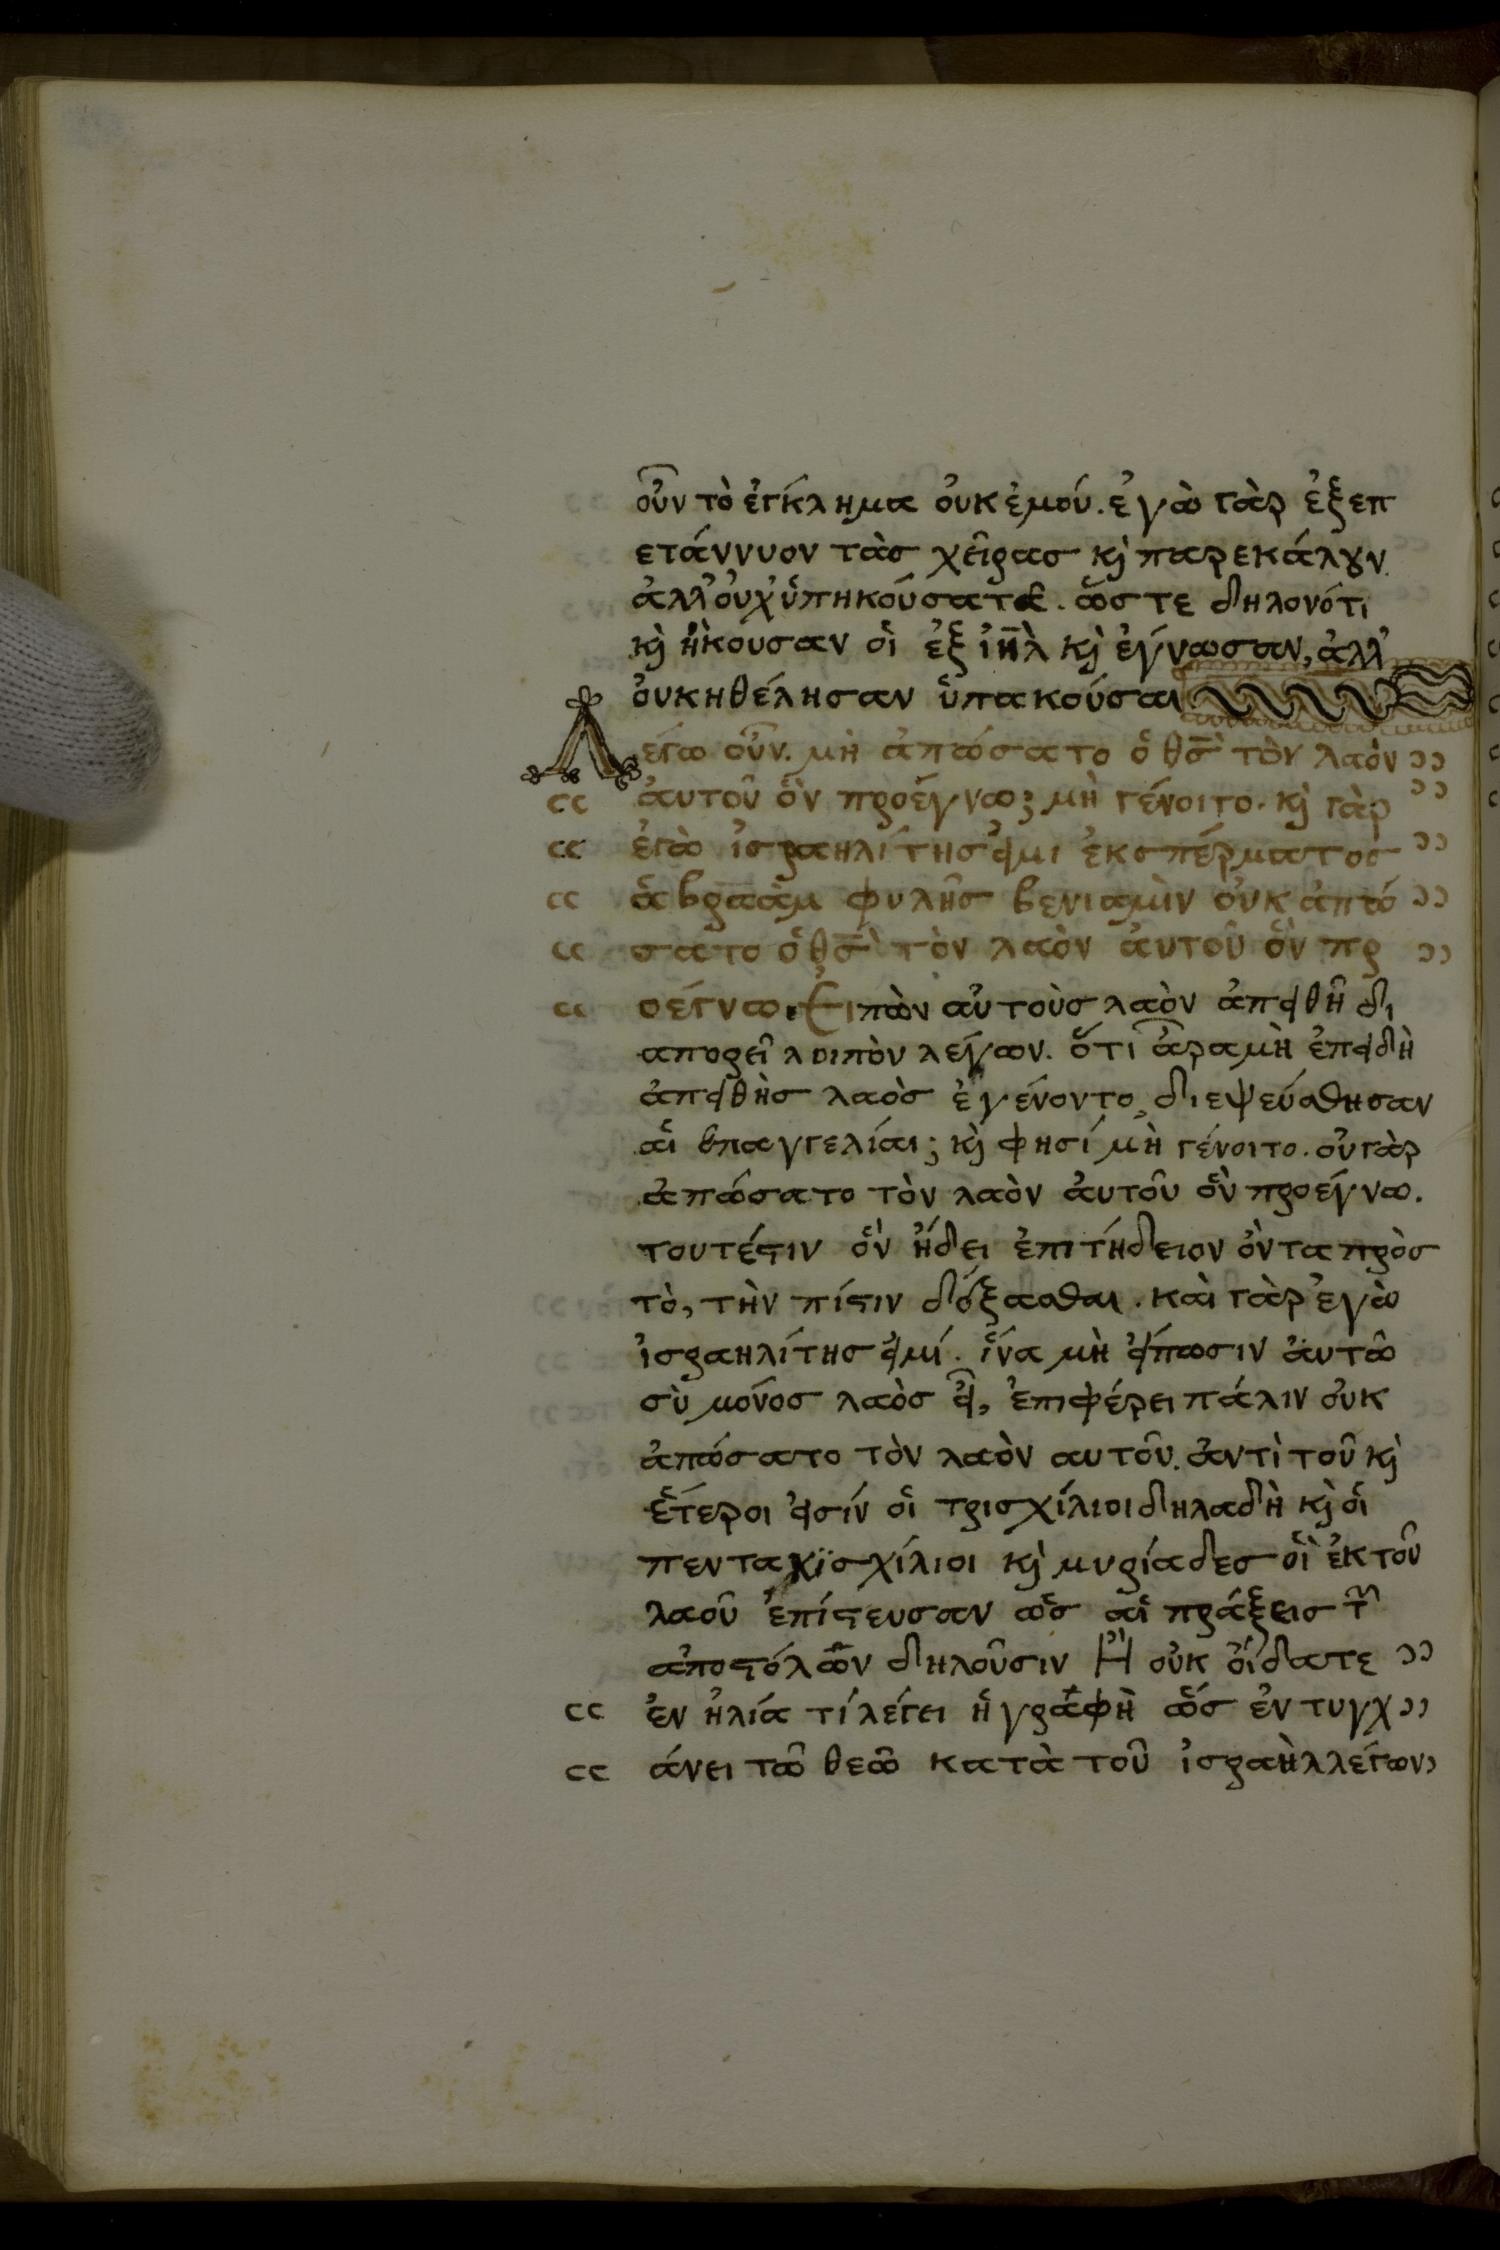 οὖν τὸ ἔγκλημα οὐκ ἐμού. ἐγὼ γὰρ ἐξεπ
ετάννυον τὰσ χεῖρασ κ̀ παρεκάλουν.
ἀλλ' οὐχ ὑπηκούσατε. ὥστε δηλονότι
κ̀ ἤκουσαν οἱ ἐξ ἰη̅λ κ̀ ἔγνωσαν, ἀλλ'
οὐκ ηθέλησαν ὑπακούσαι
Λέγω οὖν. μὴ ἀπώσατο ὁ θσ̅ τὸν λαὸν ››
‹‹ ἀυτοῦ ὃν προέγνω; μὴ γένοιτο. κ̀ γὰρ ››
‹‹ ἐγὼ ἰσραηλίτησ εἰμι ἐκ σπέρματοσ ››
‹‹ ἀβραὰμ φυλῆσ βενιαμὶν οὐκ ἀπώ ››
‹‹ σατο ὁ θσ̅ τὸν λαὸν ἀυτοῦ ὃν πρ ››
‹‹ οέγνω. Εἰπὼν αὐτοὺσ λαὸν ἀπειθῆ δι
απορεῖ λοιπὸν λέγων. ὅτι ἆρα μὴ ἐπειδὴ
ἀπειθὴσ λαὸσ ἐγένοντο, διεψεύσθησαν
αἱ επαγγελίαι; κ̀ φησί μὴ γένοιτο. οὐ γὰρ
ἀπώσατο τὸν λαὸν ἀυτοῦ ὃν προέγνω.
τουτέστιν ὃν ἤδει ἐπιτήδειον ὄντα πρὸσ
τὸ, τὴν πίστιν δέξασθαι. καὶ γὰρ ἐγὼ
ἰσραηλίτησ εἰμί. ἵνα μὴ εἴπωσιν ἀυτῶ
σὺ μόνοσ λαὸσ εἶ, ἐπιφέρει πάλιν οὐκ
ἀπώσατο τὸν λαὸν αυτοῦ. ἀντὶ τοῦ κ̀
ἕτεροι εἰσίν οἱ τρισχίλιοι δηλαδὴ κ̀ οἱ
πεντακϊσχίλιοι κ̀ μυρίαδεσ οἳ ἐκ τοῦ
λαοῦ ἐπίστευσαν ὡσ αἱ πράξεισ τῶν
ἀποστόλων δηλοῦσιν Ἢ οὐκ οἴδατε ››
‹‹ ἐν ἠλία τί λέγει ἡ γραφὴ ὡσ ἐντυγχ ››
‹‹ άνει τῶ θεῶ κατὰ τοῦ ἰσραὴλ λέγων ›